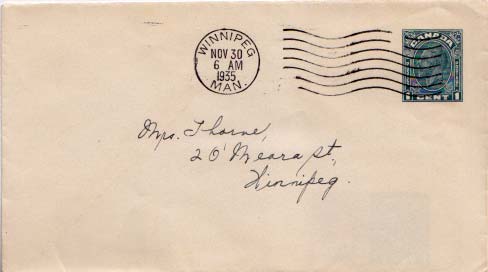 WINNIPEG
NOV 30
6 AM
1935
MAN.
CANADA
1 CENT 1
Mrs. Thorne,
20 O'Meara St.,
Winnipeg.